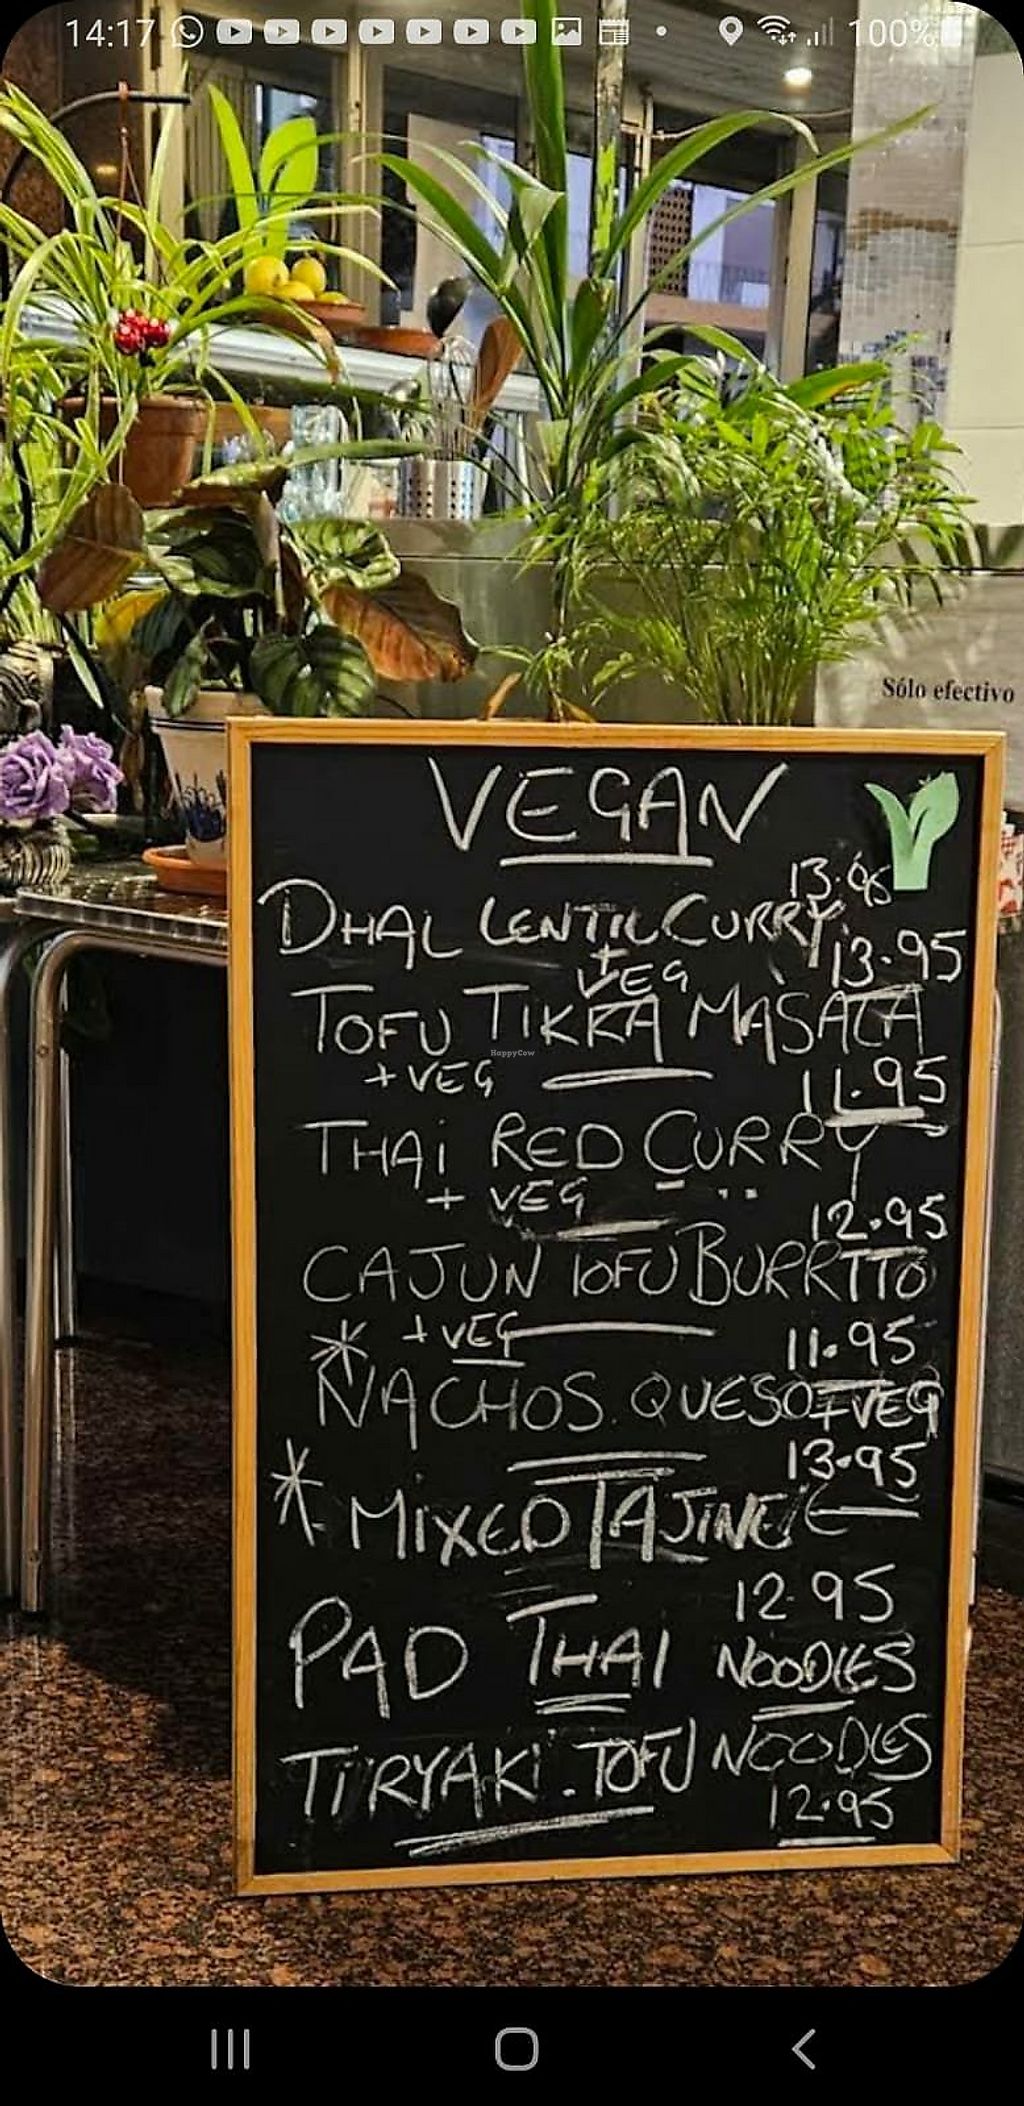 14:17 100%
Sólo efectivo
VEGAN
13.95
DHAL LENTIL CURRY
+ VEG
13.95
TOFU TIKRA MASALA
+ VEG
11.95
THAi RED CURRY
+ VEG
12.95
CAJUN TOFU BURRTTO
* + VEG
11.95
NACHOS. QUESO + VEG
13.95
* MiXED TAJiNE
12.95
PAD THAI NOODLES
TiRYAKi. TOFU NOODLES
12.95
HappyCow